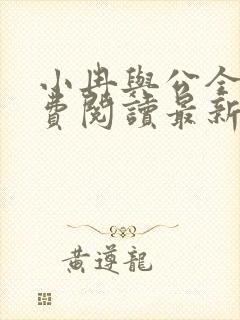 小冉與公全
費閱讀最新
黃遵龍